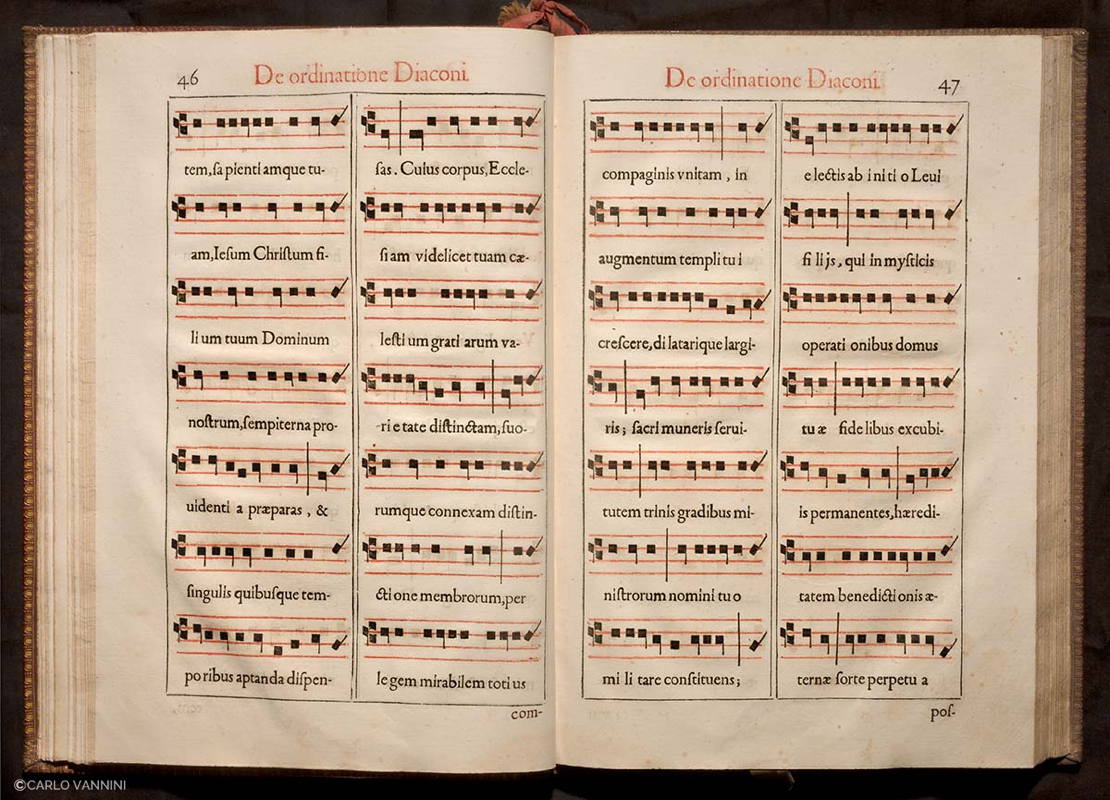 46
De ordinatione Diaconi.
tem,sa pienti amque tu-
am,Iesum Christum fi-
li um tuum Dominum
nostrum,sempiterna pro-
uidenti a præparas , &
singulis quibusque tem-
po ribus aptanda dispen-
sas . Cuius corpus,Eccle-
si am videlicet tuam cæ-
lesti um grati arum va-
ri e tate distinctam,suo-
rumque connexam distin-
cti one membrorum,per
le gem mirabilem toti us
com-
De ordinatione Diaconi.
47
compaginis vnitam , in
augmentum templi tu i
crescere,di latarique largi-
ris ; sacri muneris serui-
tutem trinis gradibus mi-
nistrorum nomini tu o
mi li tare constituens ;
e lectis ab i ni ti o Leui
fi li js , qui in mysticis
operati onibus domus
tu æ fide libus excubi-
is permanentes,hæredi-
tatem benedicti onis æ-
ternæ sorte perpetu a
pos-
©CARLO VANNINI